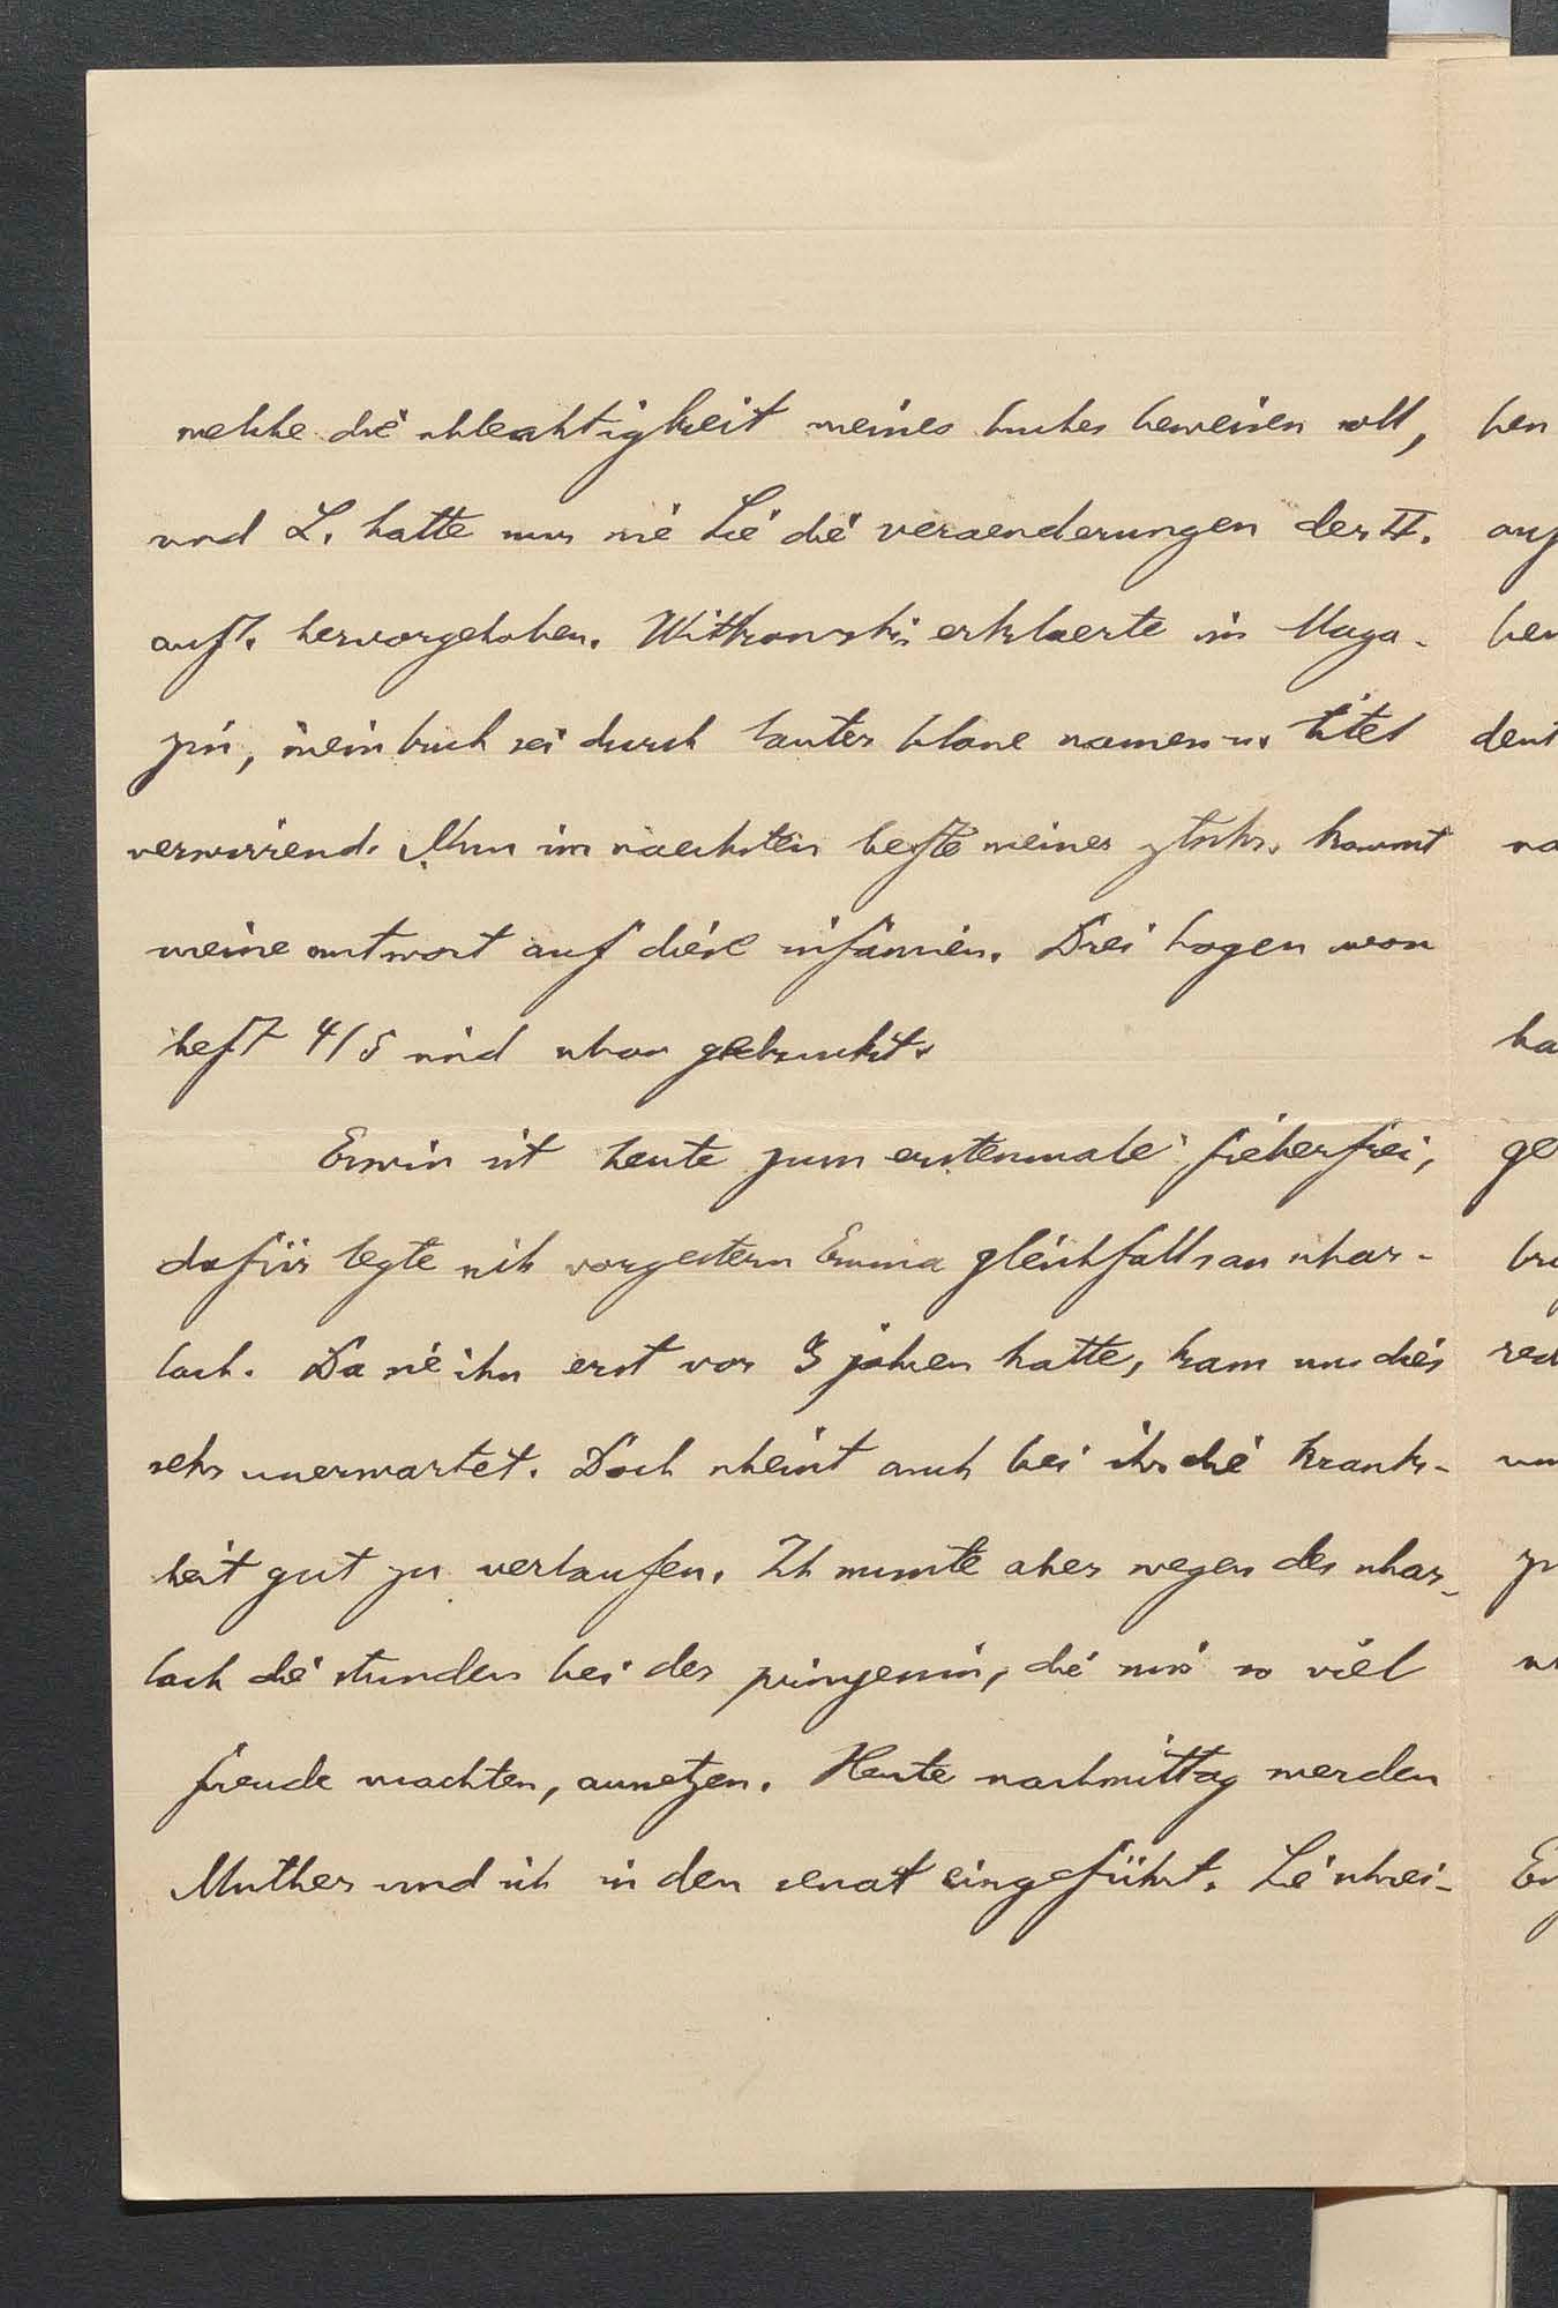 welche die schleachtigkeit meines buches beweisen soll,
und L. hatte nur wie Sie die veraenderungen der II.
aufl. hervorgehoben. Witkowski erklaerte im Maga-
zin, mein buch sei durch lauter blose namen u. titel
verwirrend. Nun im naechsten hefte meiner ztschr. kommt
meine antwort auf diese infamien. Drei bogen von
heft 4/5 sind schon gedruckt.
Erwin ist heute zum erstenmale fieberfrei,
dafür legte sich vorgestern Emma gleichfalls an schar-
lach. Da sie ihn erst vor 3 jahren hatte, kam uns dies
sehr unerwartet. Doch scheint auch bei ihr die krank-
heit gut zu verlaufen. Ich musste aber wegen des schar-
lach die stunden bei der prinzessin, die mir so viel
freude machten, aussetzen. Heute nachmittag werden
Muther und ich in den senat eingeführt. Sie schrei-